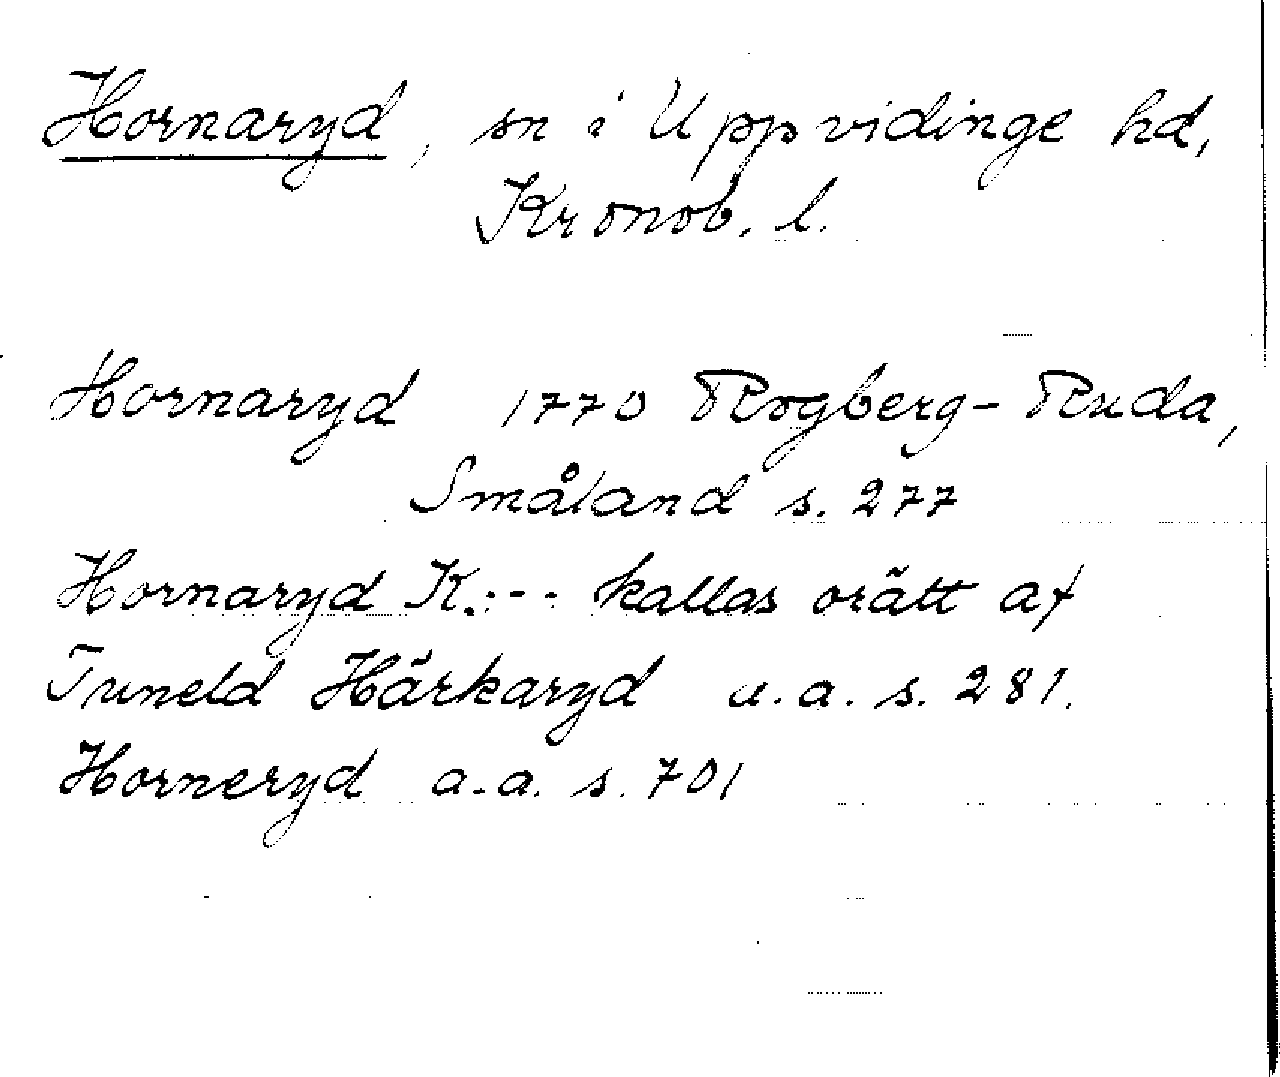 Hornaryd, sn i Uppvidinge hd,
Kronob. l.
Hornaryd 1770 Rogberg-Ruda,
Småland s. 277
Hornaryd K.:-- kallas orätt af
Tuneld Härkaryd u.a. s. 281.
Horneryd a.a. s. 701